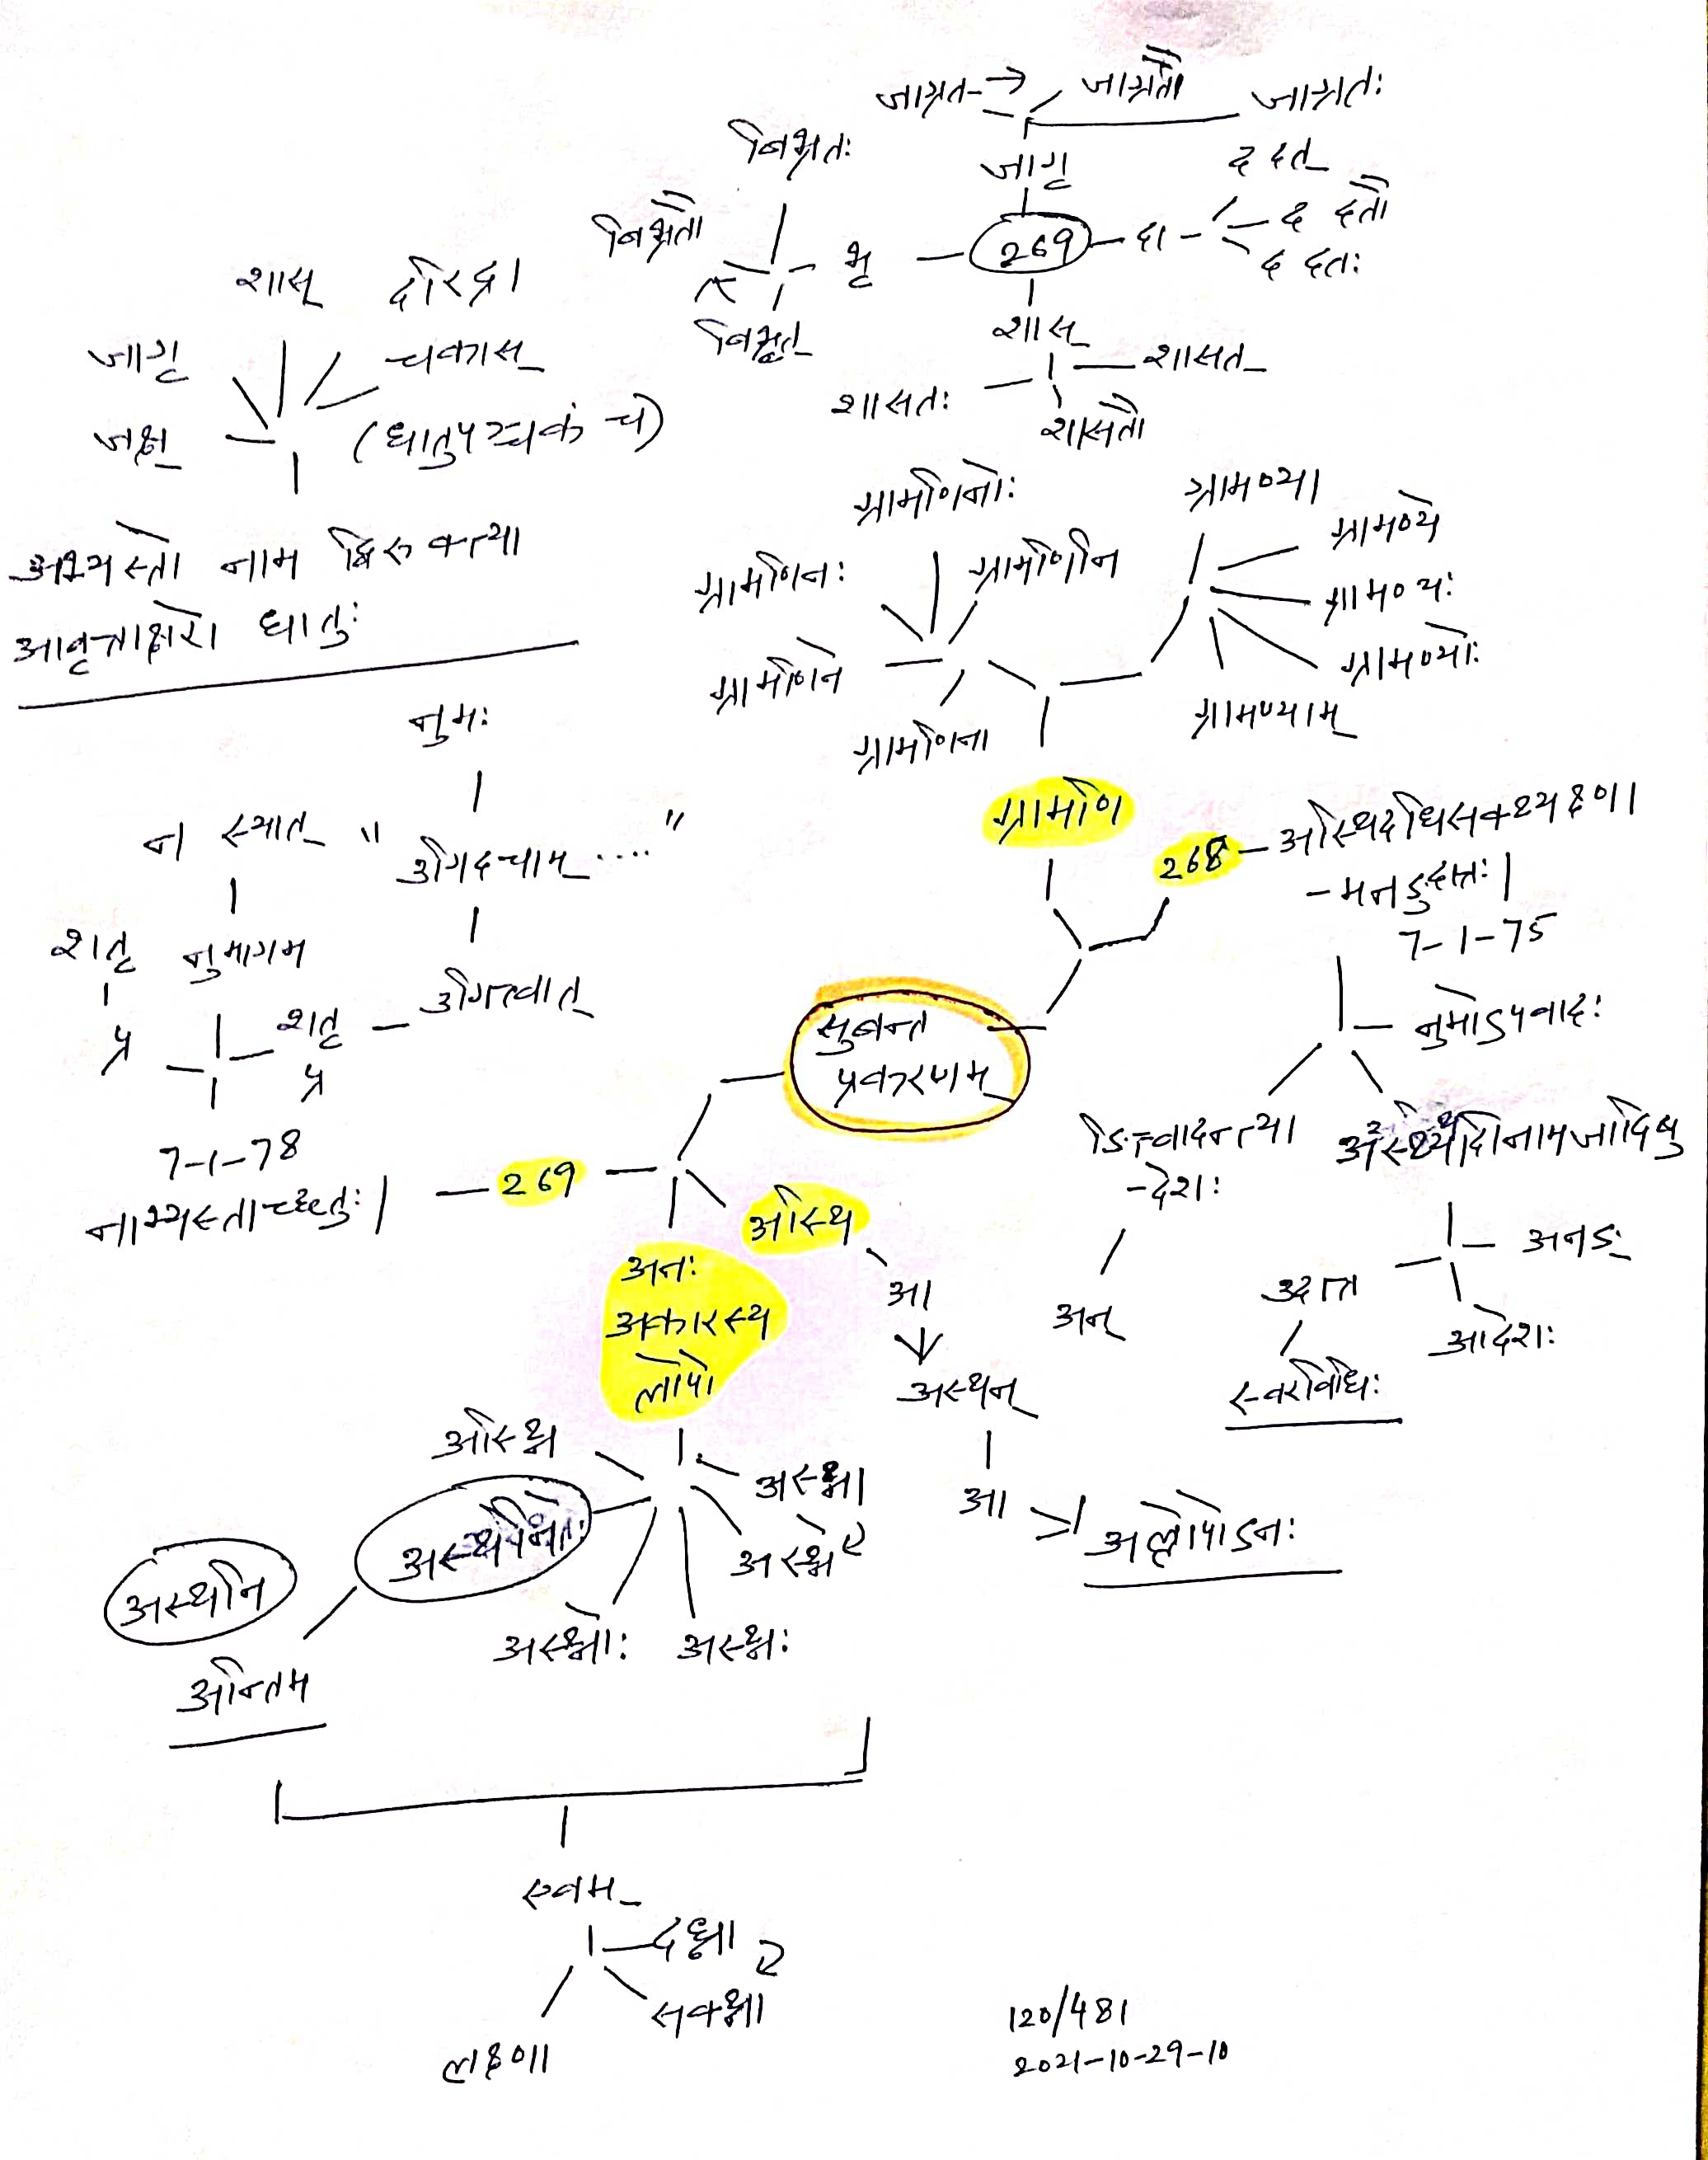 जाग्रत्
जाग्रतौ
जाग्रतः
जागृ
बिभ्रतः
बिभ्रतौ
बिभ्रत्
भृ
269
दा
ददत्
ददतौ
ददतः
शास्
शासत्
शासतौ
शासतः
शास्
दरिद्रा
जागृ
चकास्
जक्ष्
(धातुपञ्चकं च)
अभ्यस्तो नाम द्विरुक्त्या
आवृत्ताक्षरो धातुः
ग्रामणिनोः
ग्रामणिनः
ग्रामणिनि
ग्रामणिने
ग्रामणिना
ग्रामण्या
ग्रामण्ये
ग्रामण्यः
ग्रामण्योः
ग्रामण्याम्
ग्रामणि
268
अस्थिदधिसक्थ्यक्ष्णा
-मनङुदात्तः।
7-1-75
नुमोऽपवादः
ङित्त्वादन्त्या
-देशः
अन्
अस्थ्यादीनामजादिषु
अनङ्
आदेशः
उदात्त
स्वरविधिः
नुमः
न स्यात् "उगिदचाम्...."
उगित्वात्
नुमागम
शतृ
प्र
शतृ
प्र
7-1-78
नाभ्यस्ताच्छतुः।
269
सुबन्त
प्रकरणम्
अस्थि
आ
अस्थन्
आ
अल्लोपोऽनः
अनः
अकारस्य
लोपो
अस्थ्नि
अस्थ्ना
अस्थ्ने
अस्थ्नः
अस्थ्नोः
अस्थनि
अन्तिम
एवम्
दध्ना
सक्थ्ना
अक्ष्णा
120/481
2021-10-29-10